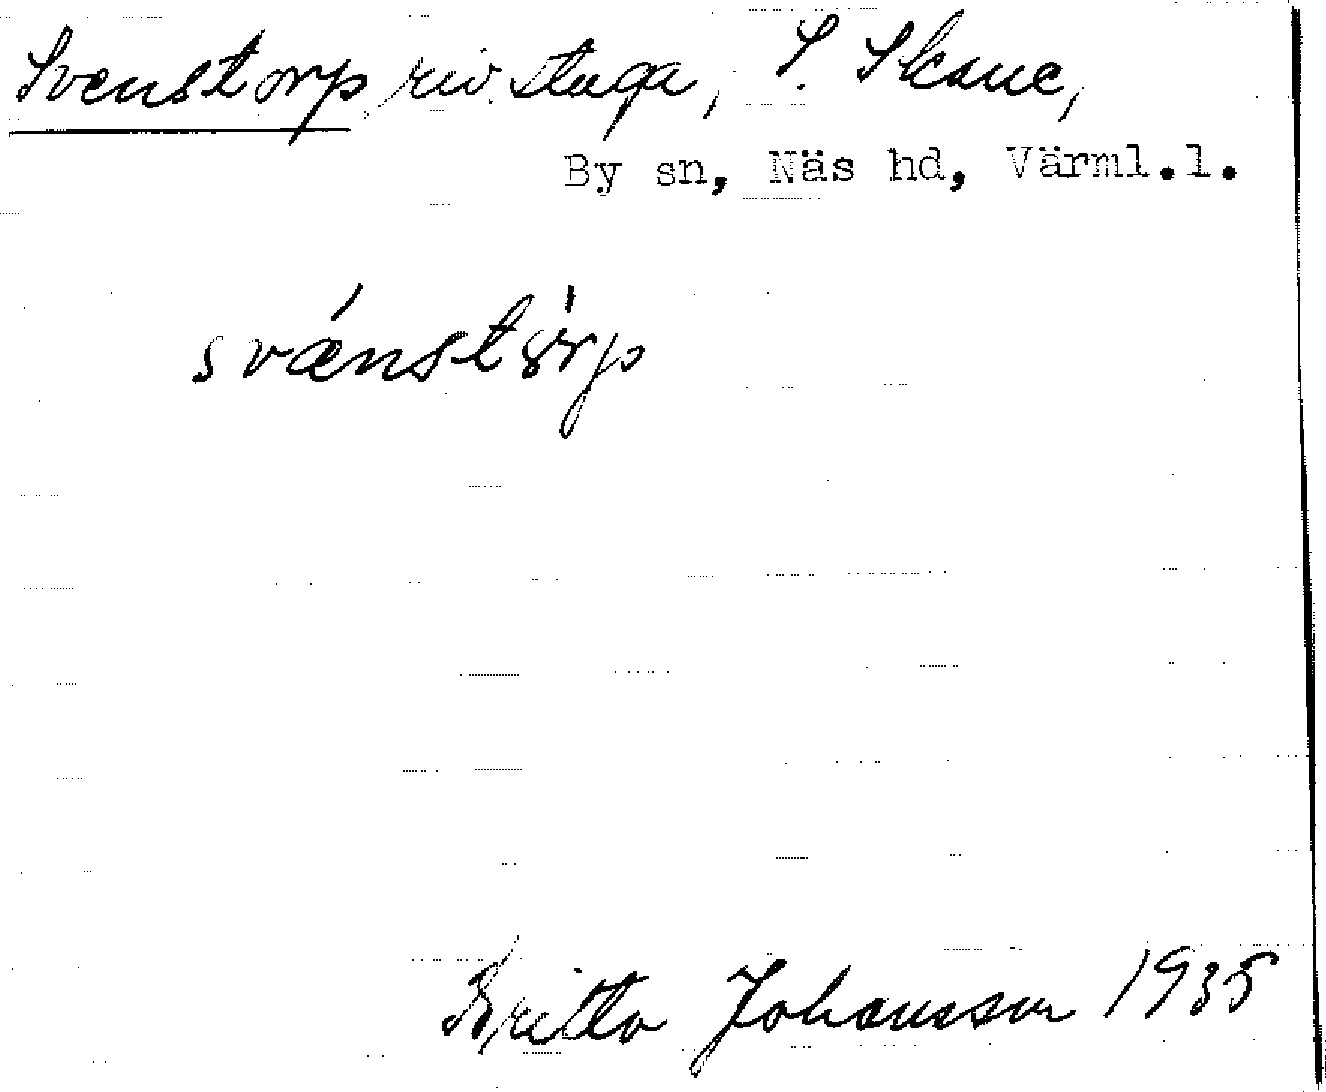 Svenstorp riv. stuga, S. Skane,
By sn, Näs hd, Värml.l.
svänstörp
Britta Johansson 1935